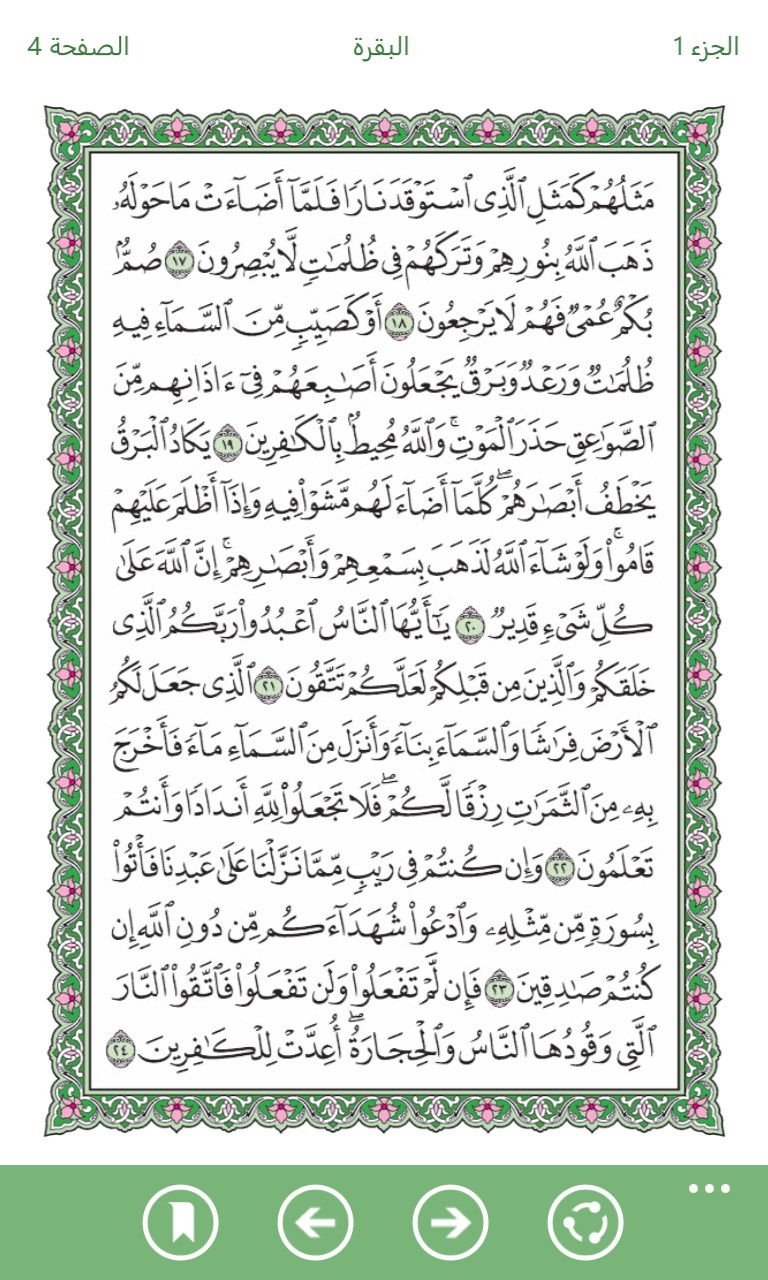 الجزء 1 البقرة الصفحة 4
مَثَلُهُمْ كَمَثَلِ ٱلَّذِى ٱسْتَوْقَدَ نَارًا فَلَمَّآ أَضَآءَتْ مَا حَوْلَهُۥ
ذَهَبَ ٱللَّهُ بِنُورِهِمْ وَتَرَكَهُمْ فِى ظُلُمَٰتٍ لَّا يُبْصِرُونَ ١٧ صُمٌّۢ
بُكْمٌ عُمْىٌ فَهُمْ لَا يَرْجِعُونَ ١٨ أَوْ كَصَيِّبٍ مِّنَ ٱلسَّمَآءِ فِيهِ
ظُلُمَٰتٌ وَرَعْدٌ وَبَرْقٌ يَجْعَلُونَ أَصَٰبِعَهُمْ فِىٓ ءَاذَانِهِم مِّنَ
ٱلصَّوَٰعِقِ حَذَرَ ٱلْمَوْتِ ۚ وَٱللَّهُ مُحِيطٌۢ بِٱلْكَٰفِرِينَ ١٩ يَكَادُ ٱلْبَرْقُ
يَخْطَفُ أَبْصَٰرَهُمْ ۖ كُلَّمَآ أَضَآءَ لَهُم مَّشَوْا۟ فِيهِ وَإِذَآ أَظْلَمَ عَلَيْهِمْ
قَامُوا۟ ۚ وَلَوْ شَآءَ ٱللَّهُ لَذَهَبَ بِسَمْعِهِمْ وَأَبْصَٰرِهِمْ ۚ إِنَّ ٱللَّهَ عَلَىٰ
كُلِّ شَىْءٍ قَدِيرٌ ٢٠ يَٰٓأَيُّهَا ٱلنَّاسُ ٱعْبُدُوا۟ رَبَّكُمُ ٱلَّذِى
خَلَقَكُمْ وَٱلَّذِينَ مِن قَبْلِكُمْ لَعَلَّكُمْ تَتَّقُونَ ٢١ ٱلَّذِى جَعَلَ لَكُمُ
ٱلْأَرْضَ فِرَٰشًا وَٱلسَّمَآءَ بِنَآءً وَأَنزَلَ مِنَ ٱلسَّمَآءِ مَآءً فَأَخْرَجَ
بِهِۦ مِنَ ٱلثَّمَرَٰتِ رِزْقًا لَّكُمْ ۖ فَلَا تَجْعَلُوا۟ لِلَّهِ أَندَادًا وَأَنتُمْ
تَعْلَمُونَ ٢٢ وَإِن كُنتُمْ فِى رَيْبٍ مِّمَّا نَزَّلْنَا عَلَىٰ عَبْدِنَا فَأْتُوا۟
بِسُورَةٍ مِّن مِّثْلِهِۦ وَٱدْعُوا۟ شُهَدَآءَكُم مِّن دُونِ ٱللَّهِ إِن
كُنتُمْ صَٰدِقِينَ ٢٣ فَإِن لَّمْ تَفْعَلُوا۟ وَلَن تَفْعَلُوا۟ فَٱتَّقُوا۟ ٱلنَّارَ
ٱلَّتِى وَقُودُهَا ٱلنَّاسُ وَٱلْحِجَارَةُ ۖ أُعِدَّتْ لِلْكَٰفِرِينَ ٢٤